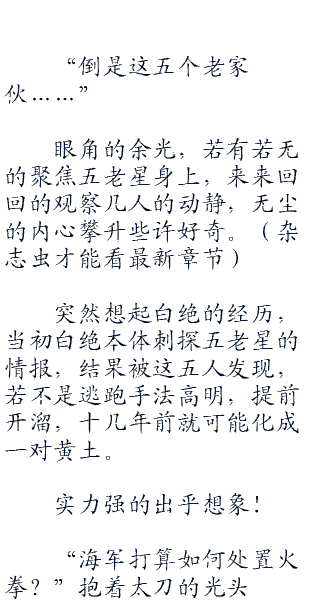 “倒是这五个老家
伙……”
眼角的余光，若有若无
的聚焦五老星身上，来来回
回的观察几人的动静，无尘
的内心攀升些许好奇。（杂
志虫才能看最新章节）
突然想起白绝的经历，
当初白绝本体刺探五老星的
情报，结果被这五人发现，
若不是逃跑手法高明，提前
开溜，十几年前就可能化成
一对黄土。
实力强的出乎想象！
“海军打算如何处置火
拳？”抱着太刀的光头